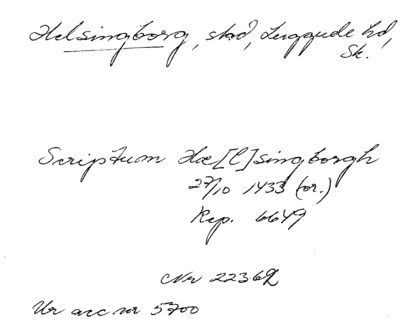 Helsingborg, stad, Luggude hd,
Sk.
Scriptum Hæ[l]singborgh
27/10 1433 (or.)
Rep. 6649
Nr 22362
Ur acc nr 5700